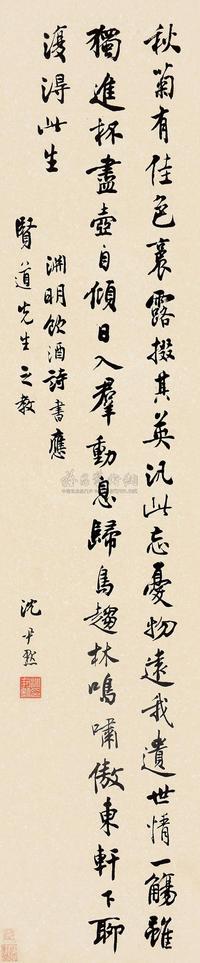 秋菊有佳色裛露掇其英汎此忘憂物遠我遺世情一觴雖
獨進杯盡壺自傾日入羣動息歸鳥趨林鳴嘯傲東軒下聊
復得此生
淵明飲酒詩書應
賢道先生之教
沈尹默